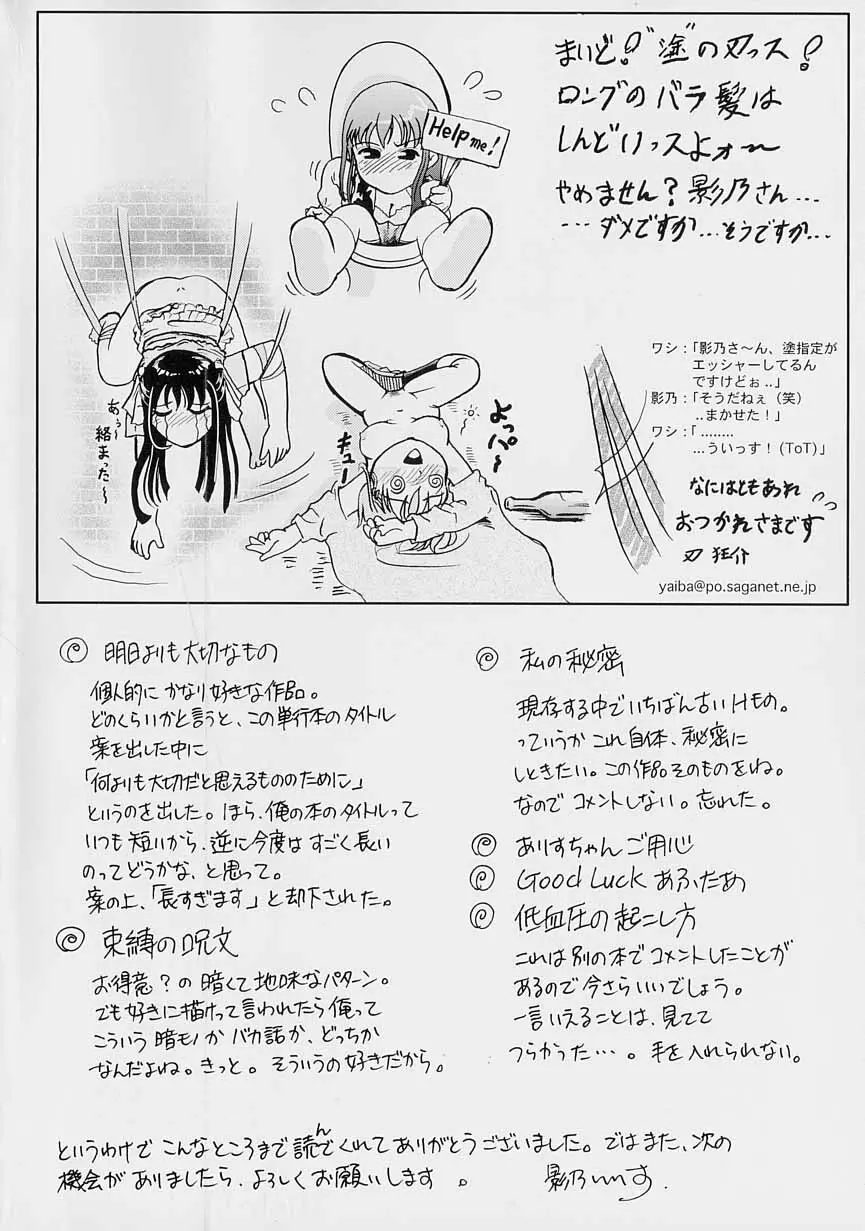 まいど!"塗"の刃っス!
ロングのバラ髪は
しんどいっスよォ〜
やめません?影乃さん……
…ダメですか…そうですか…
Help me!
あぅ〜
絡まった〜
キュー
よっパ〜
ワシ:「影乃さ〜ん、塗指定が
エッシャーしてるん
ですけどぉ..」
影乃:「そうだねぇ(笑)
..まかせた!」
ワシ:「........
...ういっす!(ToT)」
なにはともあれ
おつかれさまです
刃 狂介
yaiba@po.saganet.ne.jp
明日よりも大切なもの
個人的にかなり好きな作品。
どのくらいかと言うと、この単行本のタイトル
案を出した中に
「何よりも大切だと思えるもののために」
というのを出した。ほら、俺の本のタイトルって
いつも短いから、逆に今度はすごく長い
のってどうかな、と思って。
案の上、「長すぎます」と却下された。
束縛の呪文
お得意?の暗くて地味なパターン。
でも好きに描けって言われたら俺って
こういう暗モノかバカ話か、どっちか
なんだよね。きっと。そういうの好きだから。
私の秘密
現存する中でいちばん古いHもの。
っていうかこれ自体、秘密に
しときたい。この作品そのものをね。
なのでコメントしない。忘れた。
ありすちゃんご用心
Good Luck あふたあ
低血圧の起こし方
これは別の本でコメントしたことが
あるので今さらいいでしょう。
一言いえることは、見てて
つらかった…。手を入れられない。
というわけでこんなところまで読んでくれてありがとうございました。ではまた、次の
機会がありましたら、よろしくお願いします。 影乃いりす.